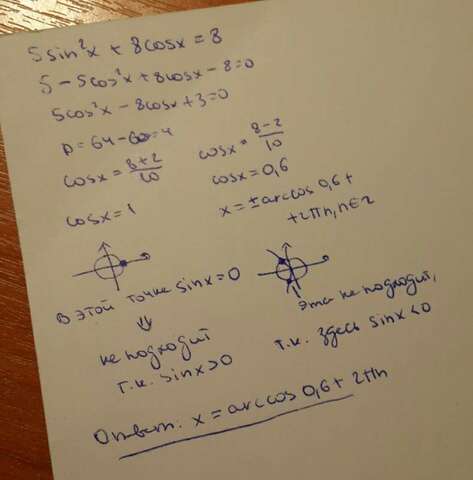 5sin²x + 8cosx = 8
5 - 5cos²x + 8cosx - 8 = 0
5cos²x - 8cosx + 3 = 0
D = 64 - 60 = 4
cosx = 8+2/10
cosx = 8-2/10
cosx = 1
cosx = 0,6
x = ± arccos 0,6 +
+ 2πn, n∈z
в этой точке sinx = 0
⇓
не подходит
т.к. sinx>0
эта не подходит,
т.к. здесь sinx<0
Ответ: x = arccos 0,6 + 2πn